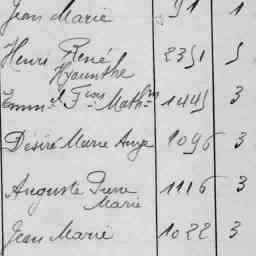 Jean Marie 91 1
Henri René 2351 5
Hyacinthe
Emm.el Fçois Math.in 1445 3
Désiré Marie Ange 1096 3
Auguste Pierre 1116 3
Marie
Jean Marie 1022 3